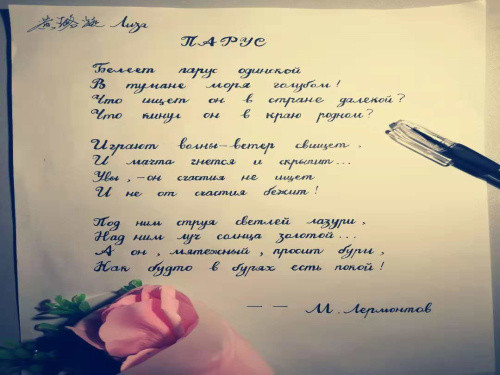 Лиза
ПАРУС
Белеет парус одинокой
В тумане моря голубом!
Что ищет он в стране далекой?
Что кинул он в краю родном?
Играют волны-ветер свищет.
И мачта гнется и скрыпит...
Увы, -он счастия не ищет
И не от счастия бежит!
Под ним струя светлей лазури,
Над ним луч солнца золотой...
А он, мятежный, просит бури,
Как будто в бурях есть покой!
— — М. Лермонтов